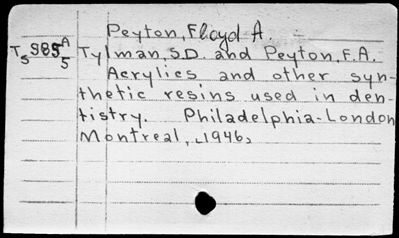 Peyton, Floyd A.
T5 985 A5 Tylman, S.D. and Peyton, F.A.
Acrylics and other syn-
thetic resins used in den-
tistry. Philadelphia-London
Montreal, [1946]